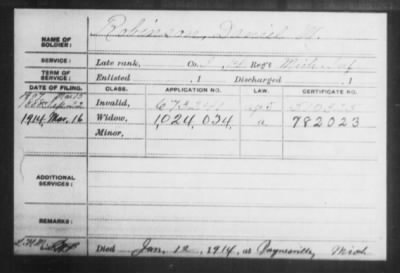 NAME OF SOLDIER: Robinson, Daniel M.
SERVICE: Late rank, Co. Reg't Mich. Inf.
TERM OF SERVICE: Enlisted , 1 Discharged , 1
DATE OF FILING. CLASS. APPLICATION NO. LAW. CERTIFICATE NO.
Invalid,
1914, Mar. 16 Widow, 1,024,034 a 782023
Minor,
ADDITIONAL SERVICES:
REMARKS:
Died Jan. 12, 1914, at Paynesville, Mich